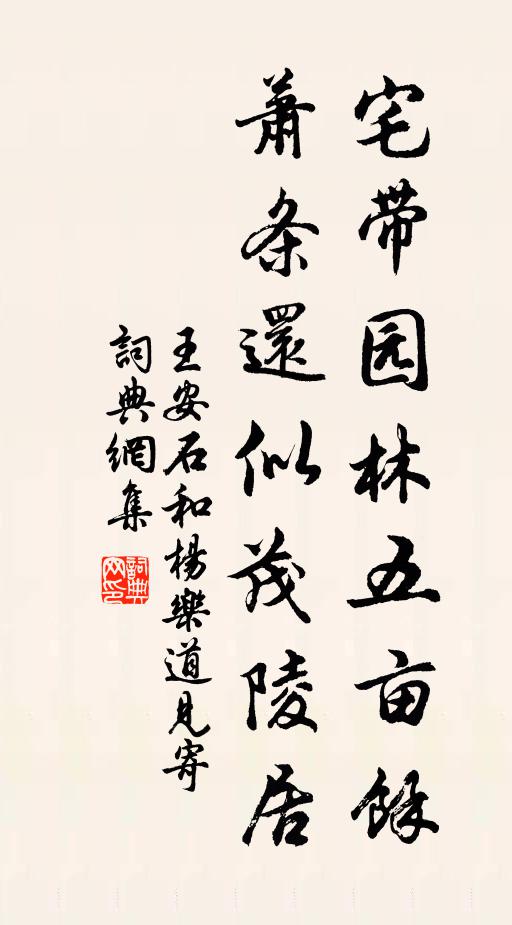 宅带园林五亩餘
萧条還似茂陵居
王安石和楊樂道見寄
詞典網集
詞典网印